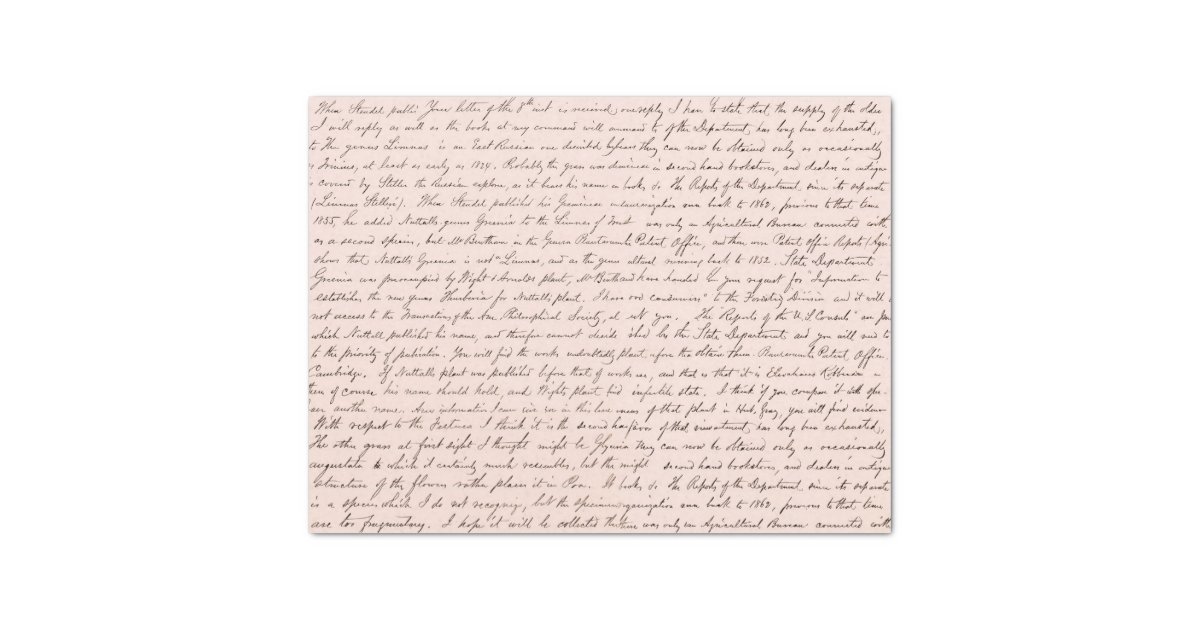 When Steudel publi Your letter of the 8th inst is received, one reply I have to state that the supply of the older
I will reply as well as the books at my command will command to of the Department, has long been exhausted,
to The genus Limnas is an East Russian one they can now be obtained only as occasionally
at least as early as 1824. Probably the grass was in second hand bookstores, and dealers in antique
is covered by Steller the Russian explorer, as it bears his name in books &c. The Reports of the Department since its separate
(Limnas Stelleri). When Steudel published his Gramineae organization run back to 1862, previous to that time
1855, he added Nuttalls genus Greenia to the Limnas of Trust was only an Agricultural Bureau connected with
as a second species, but Mr Bentham in the Genera Plantarum the Patent Office, and there were Patent Office Reports (Agri
shows that Nuttalls Greenia is not a Limnas, and as the genus running back to 1852. State Department
Greenia was preoccupied by Wight & Arnolds plant, Mr Benth and have handed In your request for "Information to
establishes the new genus for Nuttalls plant. I have consumers" to the Forestry Division and it will
not access to the Transactions of the Am. Philosophical Society, at you. The "Reports of the U.S. Consuls" are
which Nuttall published his name, and therefore cannot decide by the State Department, and you will need to
to the priority of publication. You will find the works undoubtedly obtain them. Patent Office
Cambridge. If Nuttalls plant was published before that of and that is that it is Robbinsia
then of course his name should hold, and Wights plant find infertile state. I think if you compare it with
another name. information I can give you in this line means of that plant in Herb. Gray, you will find evidence
With respect to the Festuca I think it is the second has long been exhausted,
The other grass at first sight I thought might be Glyceria they can now be obtained only as occasionally
angustata to which it certainly much resembles, but the might second hand bookstores, and dealers in antique
structure of the flowers rather places it in Poa. It books &c. The Reports of the Department since its separate
is a species which I do not recognize, but the specimens organization run back to 1862, previous to that time
are too fragmentary. I hope it will be collected there was only an Agricultural Bureau connected with